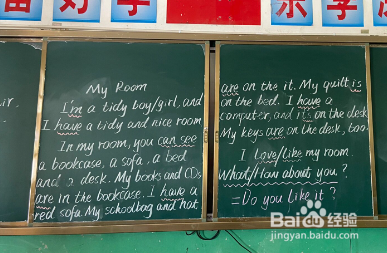 好学 乐学
ir.
My Room
I'm a tidy boy/girl, and
I have a tidy and nice room
In my room, you can see
a bookcase, a sofa, a bed
and a desk. My books and CDs
are in the bookcase. I have a
red sofa. My schoolbag and hat
are on the it. My quilt is
on the bed. I have a
computer, and it's on the desk
My keys are on the desk, too.
I love/like my room.
What/How about you?
=Do you like it?
Baidu百度经验
jingyan.baidu.com